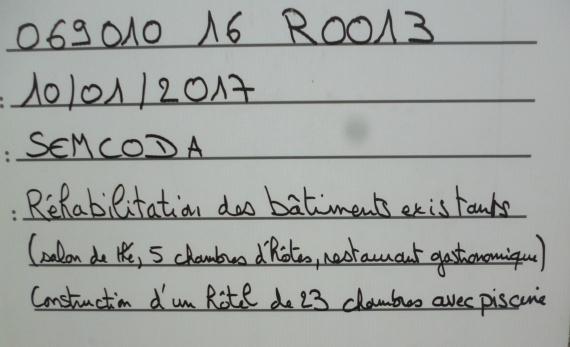 069010 16 R0013
: 10/01/2017
: SEMCODA
: Réhabilitation des bâtiments existants
(salon de thé, 5 chambres d'hôtes, restaurant gastronomique)
Construction d'un hôtel de 23 chambres avec piscine